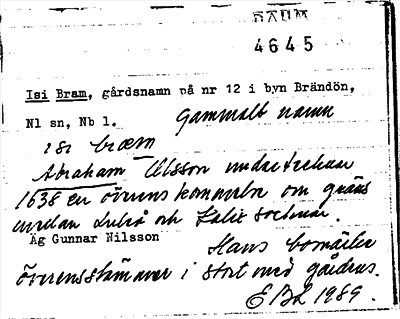 DAUM
4645
Isi Bram, gårdsnamn på nr 12 i byn Brändön,
Nl sn, Nb l.
Gammalt namn
isi bræm
Abraham Olsson undertecknar
1638 en överens kommelse om gräns
mellan Luleå och Kalix socknar.
Äg Gunnar Nilsson
Hans bomärke
överensstämmer i stort med gårdens.
EBL 1989.